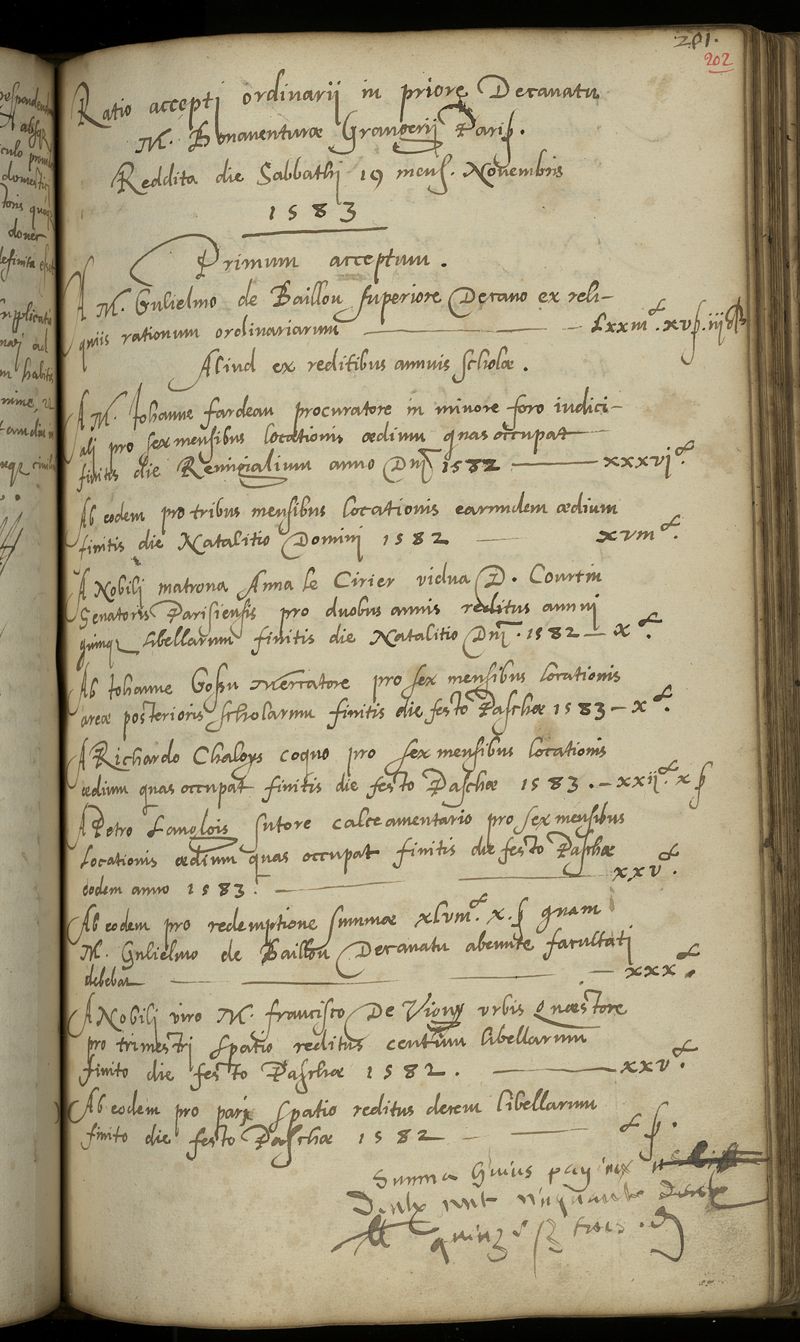 201.
202
Ratio accepti ordinarii in priore Decanatu
M. Bonaventuræ Grangerij Paris.
Reddita die Sabbathi 19 mens. Novembris
1583
Primum acceptum.
A M. Gulielmo de Baillou superiore Decano ex reli-
quiis rationum ordinariarum — lxxiii ₶. xv ß. iiij
Aliud ex reditibus annuis scholæ.
A M. Iohanne Fardeau procuratore in minore foro iudici-
ali pro sex mensibus locationis ædium quas occupat
finitis die Remigialium anno Dni 1582 — xxxvj ₶.
Ab eodem pro tribus mensibus locationis earumdem ædium
finitis die Natalitio Domini 1582 — xviii ₶.
A Nobili matrona Anna le Cirier vidua D. Courtin
Senatoris Parisiensis pro duobus annis reditus annui
quinq libellarum finitis die Natalitio Dni. 1582 — x ₶.
Ab Iohanne Gossu Mercatore pro sex mensibus locationis
areæ posterioris scholarum finitis die festo Paschæ 1583 — x ₶.
A Richardo Chaloys coquo pro sex mensibus locationis
ædium quas occupat finitis die festo Paschæ 1583. — xxij ₶. x ß
A Petro Langlois sutore calceamentario pro sex mensibus
locationis ædium quas occupat finitis die festo Paschæ
eodem anno 1583. — xxv ₶.
Ab eodem pro redemptione summæ xlviii ₶. x. ß quam
M. Gulielmo de Baillou Decanatu abeunte facultati
debebat — xxx ₶.
A Nobili viro M. Francisco De Vigny urbis Quæstore
pro trimestri spatio reditus centum libellarum
finito die festo Paschæ 1582. — xxv ₶.
Ab eodem pro pari spatio reditus decem libellarum
finito die festo Paschæ 1582 — l ß.
Summa huius paginæ
Deulx cent cinquante
quinze ß trois. d